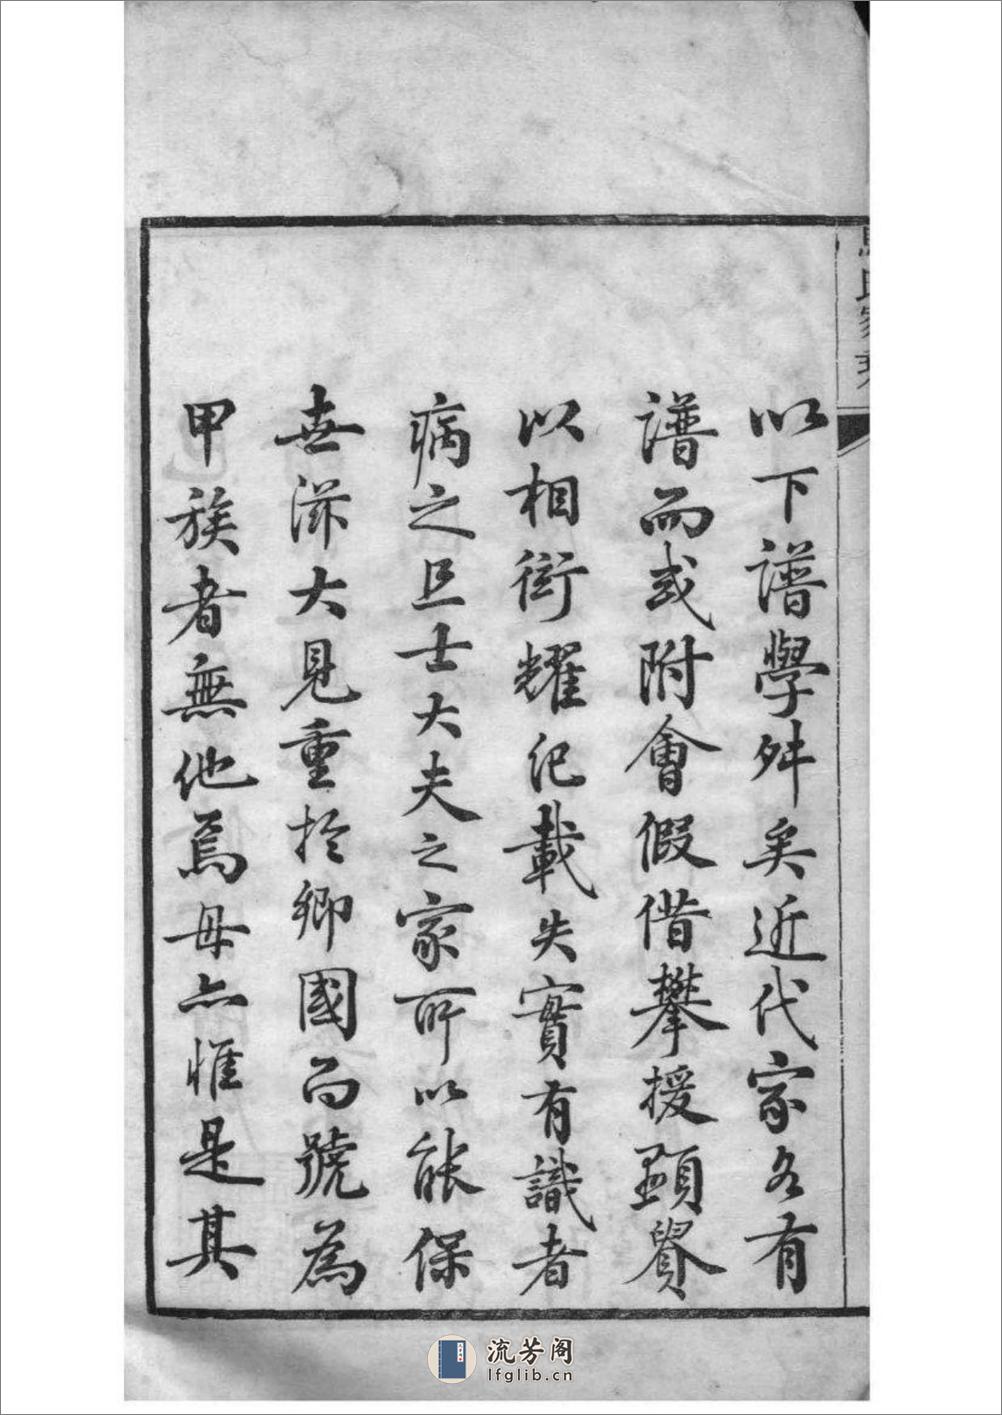 以下譜學舛矣近代家各有
譜而或附會假借攀援顯貴
以相衒耀記載失實有識者
病之且士大夫之家所以能保
世滋大見重於鄉國而號為
甲族者無他焉毋亦惟是其
流芳阁
lfglib.cn